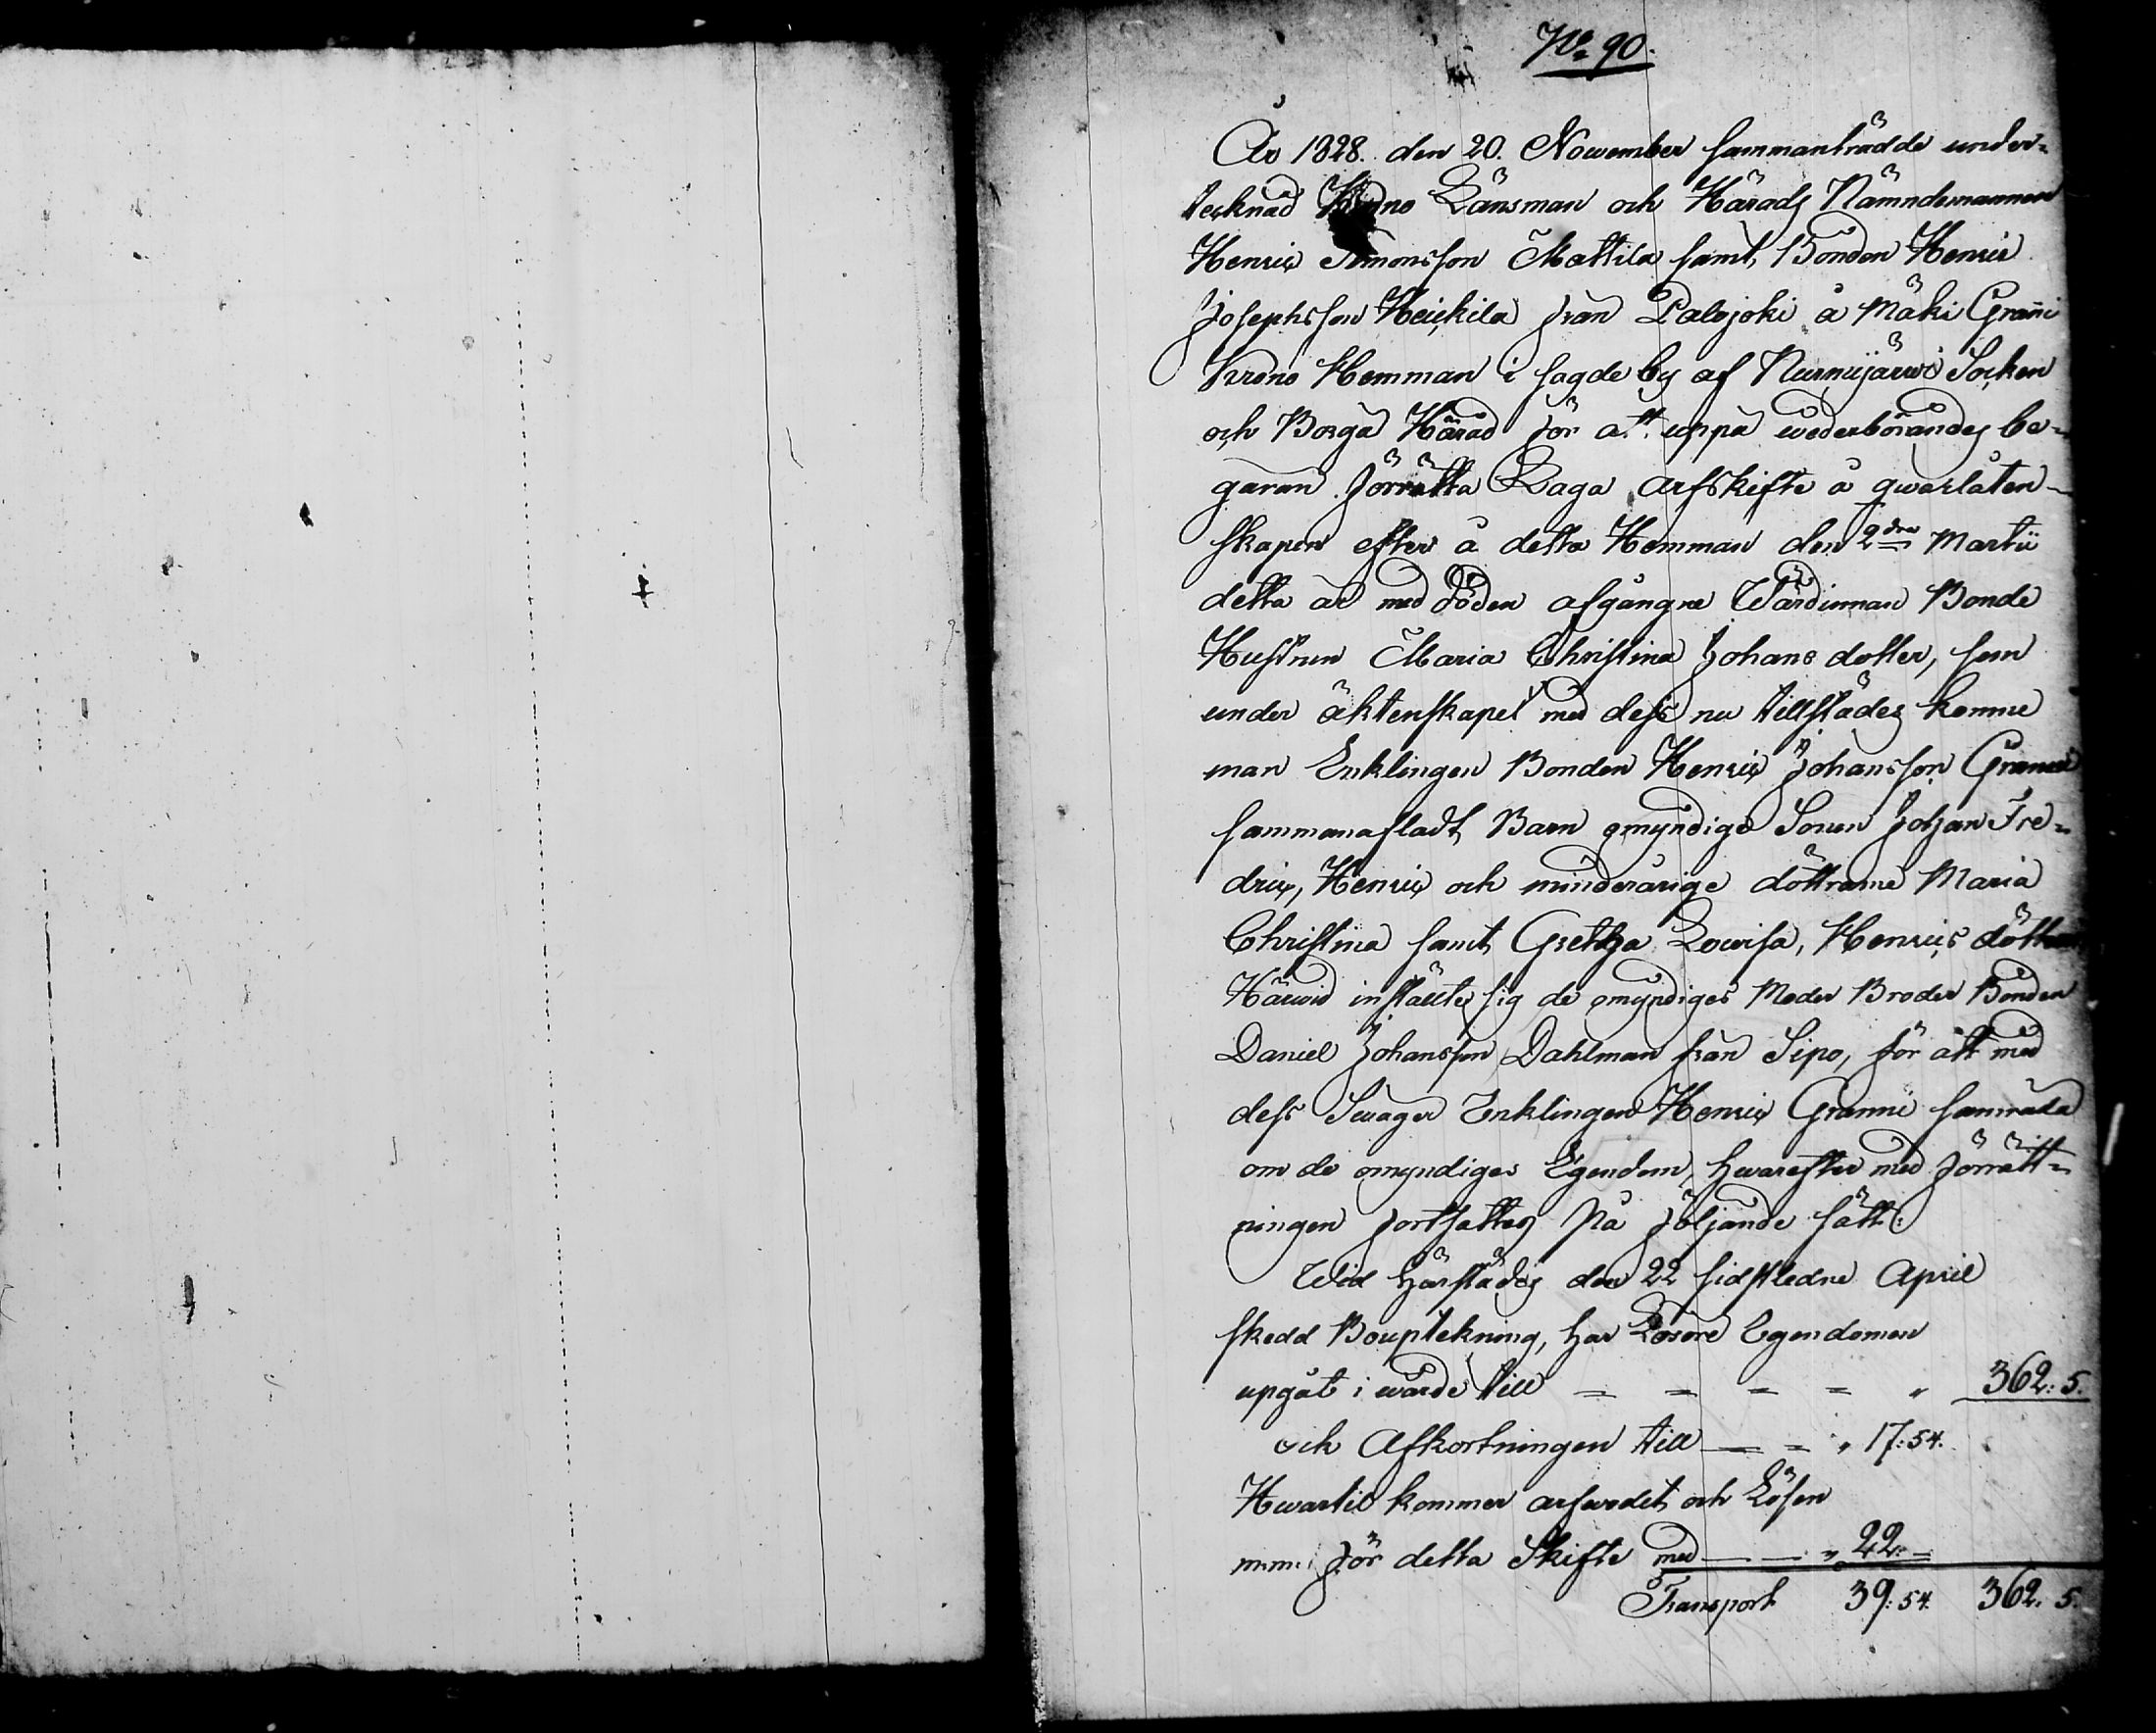 No 90.
År 1828. den 20. November sammanträdde under-
tecknad Krono Länsman och Härads Nämndemannen
Henric Simonsson Mattila samt Bonden Henric
Josephsson Heickila från Palojoki å Mäki Granni
Krono Hemman i sagde by af Nurmijärwi Socken
och Borgå Härad för att uppå wederbörandes be-
gäran förrätta Laga arfskifte å qwarlåten-
skapen efter å detta Hemman den 2dra Martii
detta år med döden afgångne Wärdinnan Bonde
Hustrun Maria Christina Johans dotter, som
under äktenskapet med dess nu tillstädes komne
man Enklingen Bonden Henric Johansson Granni
sammanafladt Barn omyndige Sonen Johan Fre-
dric, Henric och minderårige döttrarne Maria
Christina samt Gretha Lowisa, Henrics döttrar
Härwid inställte sig de omyndiges Moder Broder Bonden
Daniel Johansson Dahlman från Sipo, för att med
dess Swåger Enklingen Henric Granni samråda
om de omyndiges Egendom, hwarefter med förrätt-
ningen fortsattes på följande sätt:
Wid härstädes den 22 sidstledne April
skedd Bouptekning, har Lösöre Egendomen
upgåt i wärde till = = = = " 362: 5.
och Afkortningen till — = " 17: 54.
Hwartil kommer arfwodet och Lösen
m.m. för detta Skifte med — — " 22: =
Transport 39: 54. 362. 5.